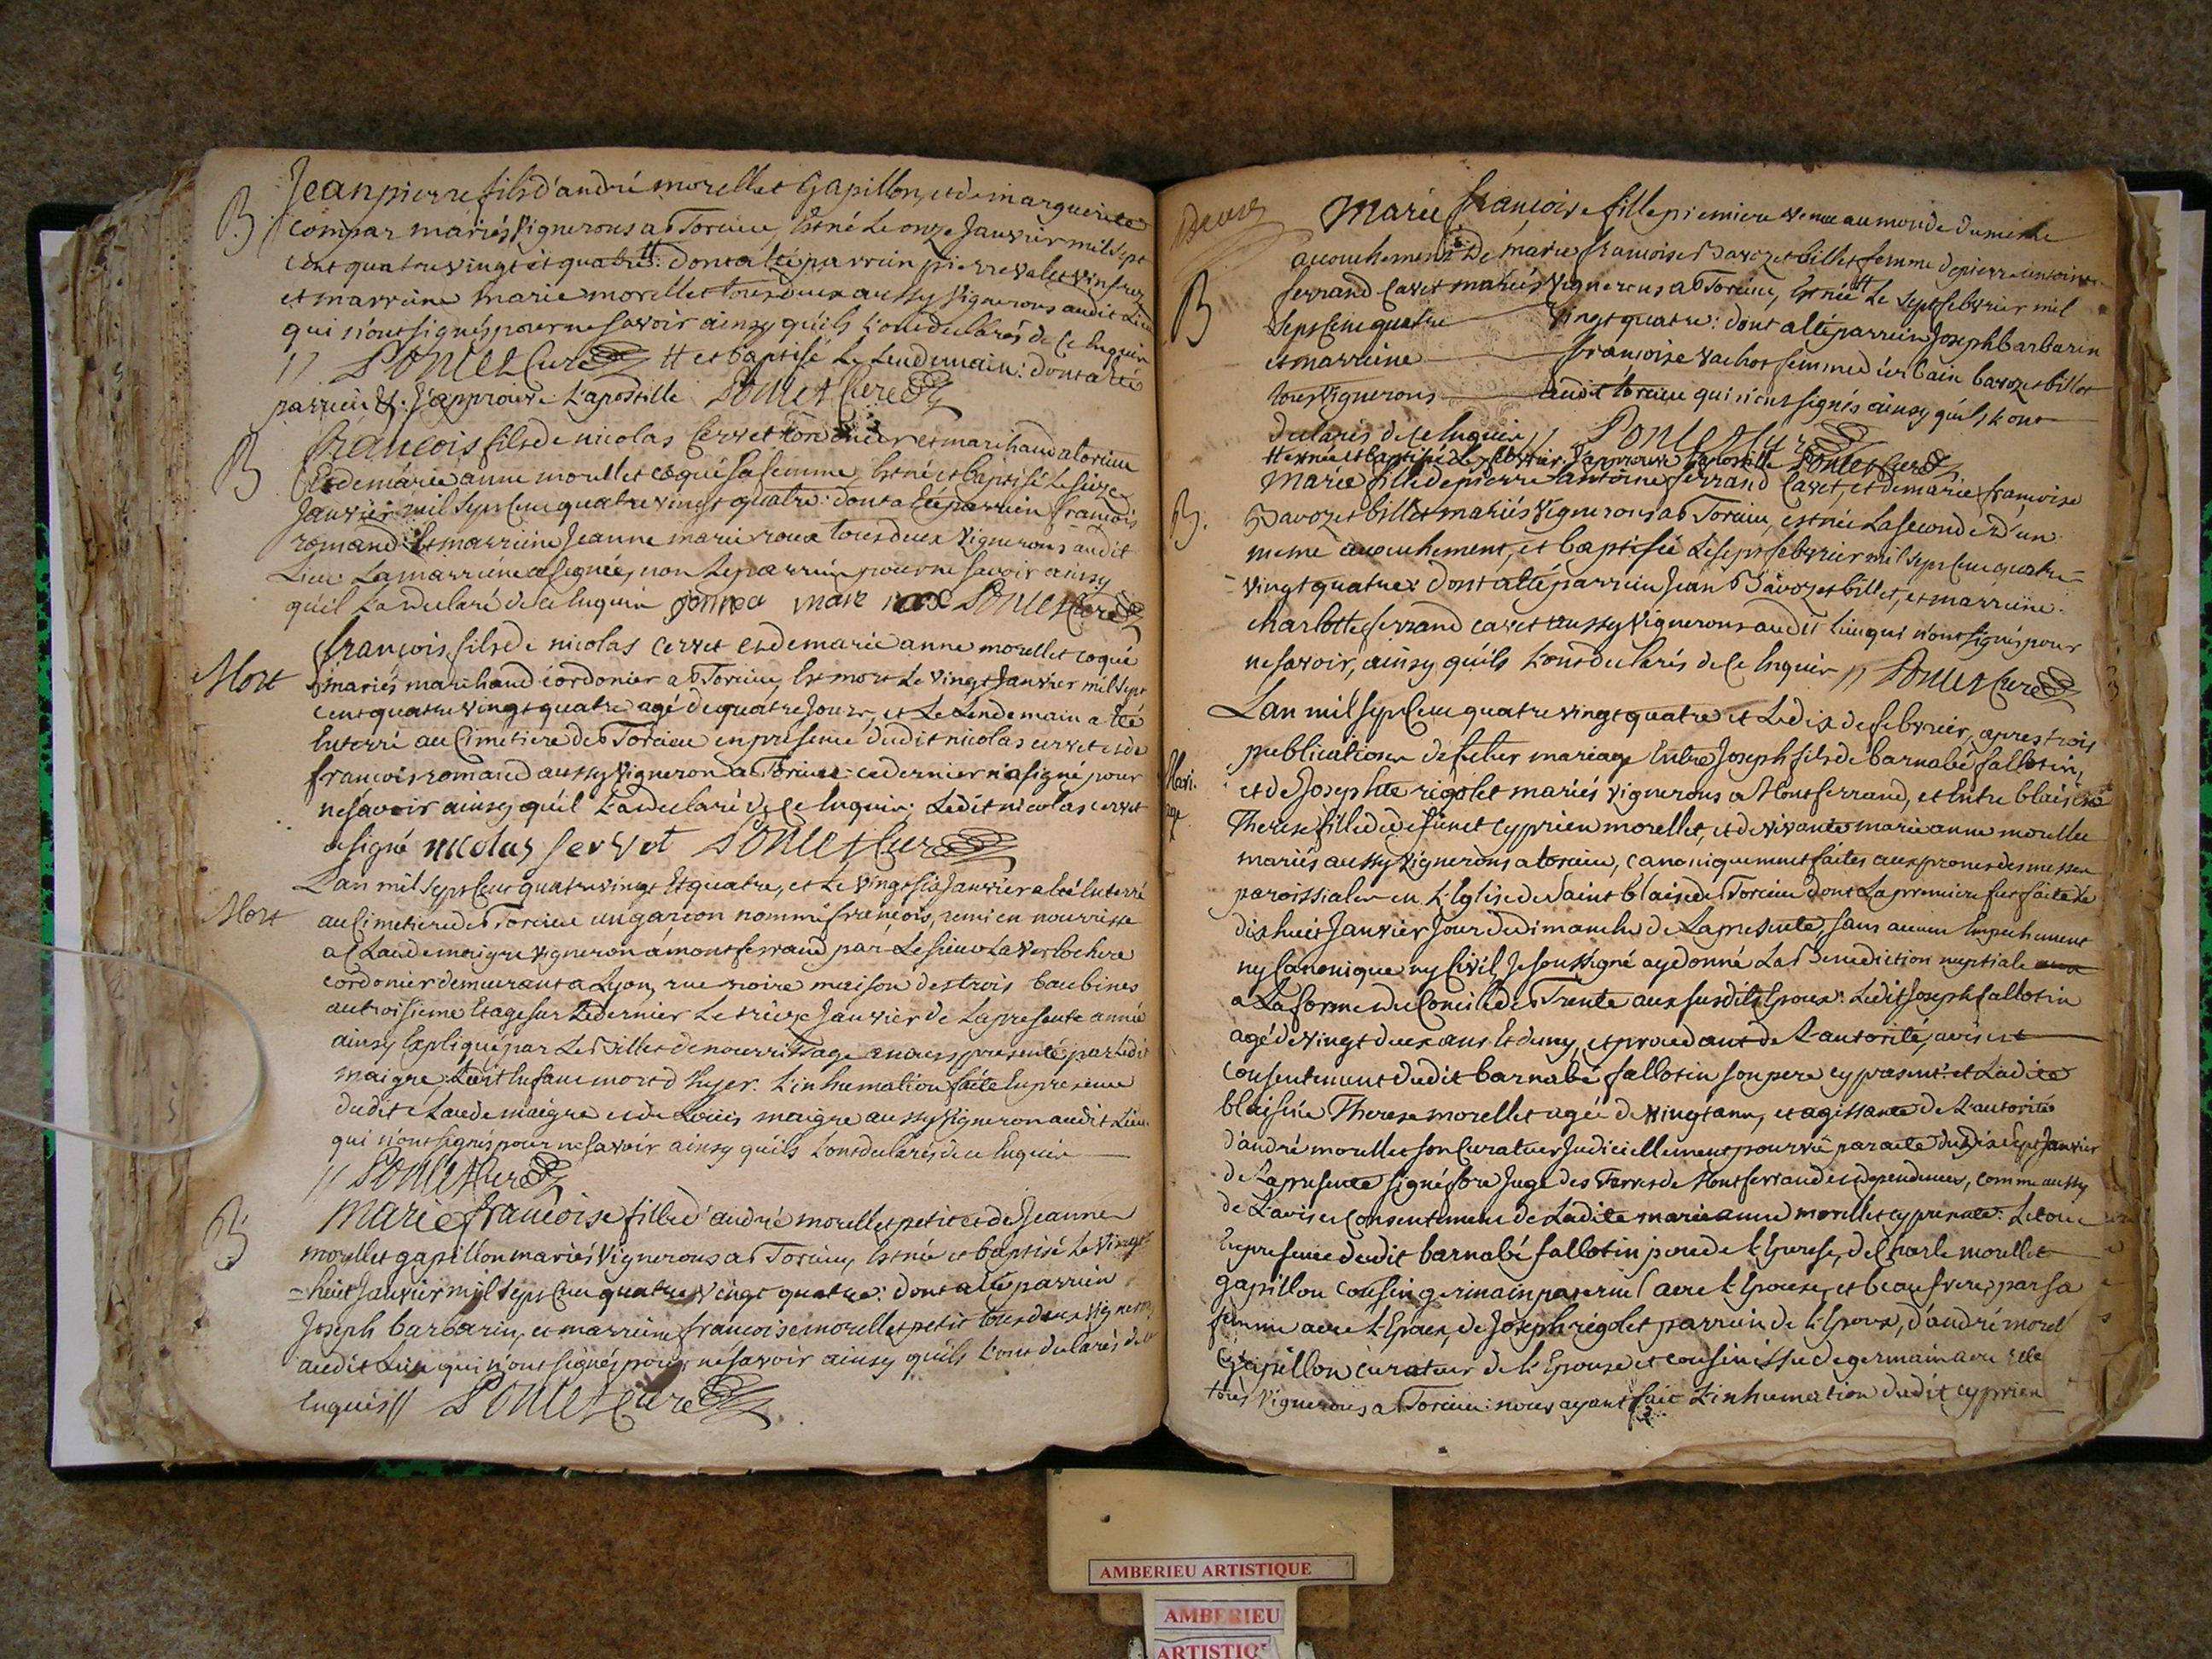 B Jean pierre fils d'andré morellet Gapillon, et de marguerite
Compar mariés Vignerons a Torcieu, Est né Le onze Janvier mil Sept
Cent quatre vingt et quatre # : dont a été parrein pierre valet
et marreine marie morellet tous deux aussy Vignerons audit Lieu
qui n'ont signés pour ne savoir ainsy qu'ils L'ont declarés de Ce Enquis
// PONCET Curé # et baptisé Le Lendemain : dont a été
parrein &. J'approuve L'apostille PONCET Curé
B françois fils de nicolas Cervet Cordonier et marchand a torcieu
Et de marie anne morellet coqué Sa femme, Est né et baptisé Le Seize
Janvier mil Sept Cent quatre vingt quatre : dont a été parrein françois
romand Et marreine Jeanne marie roux tous deux Vignerons audit
Lieu La marreine a signée, non Le parrein pour ne savoir ainsy
qu'il L'a declaré de ce Enquis PONCET Curé
françois fils de nicolas Cervet et de marie anne morellet coqué
Mort mariés marchand cordonier a Torcieu, Est mort Le vingt Janvier mil Sept
Cent quatre vingt quatre agé de quatre Jours, et Le Lendemain a été
Enterré au Cimetiere de Torcieu en presence dudit nicolas cervet et de
françois romand aussy Vigneron a Torcieu : ce dernier n'a signé pour
ne savoir ainsy qu'il L'a declaré de Ce Enquis ; Ledit nicolas cervet
a signé nicolas servet PONCET Curé
L'an mil Sept Cent quatre vingt Et quatre, et Le vingt six Janvier a été Enterré
Mort au Cimetiere de Torcieu un garçon nommé françois, remi en nourrisse
a Claude maigre Vigneron a montferrand par Le sieur
cordonier demeurant a Lyon, rue noire maison des trois
au troisieme Etage sur Le dernier Le treize Janvier de La presente année
ainsy Expliqué par Le Billet de nourrissage a nous presenté par Ledit
maigre : Ledit Enfant mort d'hyer. L'inhumation faite En presence
dudit Claude maigre et de Louis maigre aussy Vigneron audit Lieu
qui n'ont signés pour ne savoir ainsy qu'ils L'ont declarés de ce Enquis
// PONCET Curé
B. Marie françoise fille d'andré morellet petit et de Jeanne
morellet gapillon mariés Vignerons a Torcieu, Est née et baptisé Le Vingt
= huit Janvier mil Sept Cent quatre Vingt quatre : dont a été parrein
Joseph barbarin, et marreine françoise morellet petit tous deux Vignerons
audit Lieu qui n'ont signés pour ne savoir ainsy qu'ils L'ont declarés de ce
Enquis // PONCET Curé
Marie françoise fille premiere venue au monde du meme
acouchement De marie françoise Davozet billet femme de pierre antoine
ferrand Cavet mariés Vignerons a Torcieu, Est née # Le Sept febvrier mil
B Sept Cent quatre Vingt quatre : dont a été parrein Joseph barbarin
et marreine françoise vachot femme d'urbain Davozet billet
tous Vignerons audit torcieu qui n'ont signés ainsy qu'ils L'ont
declarés de Ce Enquis // PONCET Curé
J'approuve L'apostille PONCET Curé
Marie fille de pierre antoine ferrand Cavet, et de marie françoise
B. Davozet billet mariés Vignerons a Torcieu, est née La seconde d'un
meme acouchement, et baptisée Le Sept febvrier mil Sept Cent quatre =
= vingt quatre : dont a été parrein Jean Davozet billet, et marreine
charlotte ferrand cavet aussy Vignerons audit Lieu qui n'ont signés pour
ne savoir, ainsy qu'ils L'ont declarés de Ce Enquis // PONCET Curé
L'an mil Sept Cent quatre vingt quatre et Le dix de febvrier, apres trois
publications de futur mariage Entre Joseph fils de barnabé fallotin,
Mari: et de Josephte rigolet mariés Vignerons a Montferrand, et Entre blaisine
age Therese fille de defunct Cyprien morellet, et de vivante marie anne morellet
mariés aussy Vignerons a torcieu, canoniquement faites aux prones des messes
paroissiales en L'Eglise de Saint blaise de Torcieu dont La premiere fut faite Le
dix huit Janvier Jour de dimanche de La presente, sans aucun Empechement
ny Canonique ny Civil, Je soussigné ay donné La Benediction nuptiale
a La forme du Concille de Trente aux susdits Epoux : Ledit Joseph fallotin
agé de vingt deux ans Et demy, et procedant de L'autorité, avis et
Consentement dudit barnabé fallotin son pere cy present : et Ladite
blaisine Therese morellet agée de vingt ans, et agissante de L'autorité
d'andré morellet son Curateur Judiciellement pourvu par acte du dix Sept Janvier
de La presente signé fore Juge des Terres de Montferrand et dependences, comme aussy
de L'avis et Consentement de Ladite marie anne morellet cy presente : Le tout
En presence dudit barnabé fallotin pere de L'Epoux, de Charle morellet
gapillon Cousin germain paternel avec L'Epouse, et beau frere par sa
femme avec L'Epoux, de Joseph rigolet parrein de L'Epoux, d'andré morel
Gapillon curateur de L'Epouse et cousin issu de germain avec Elle
tous Vignerons a Torcieu : nous ayant fait L'inhumation dudit cyprien
AMBERIEU ARTISTIQUE
AMBERIEU
ARTISTIQ